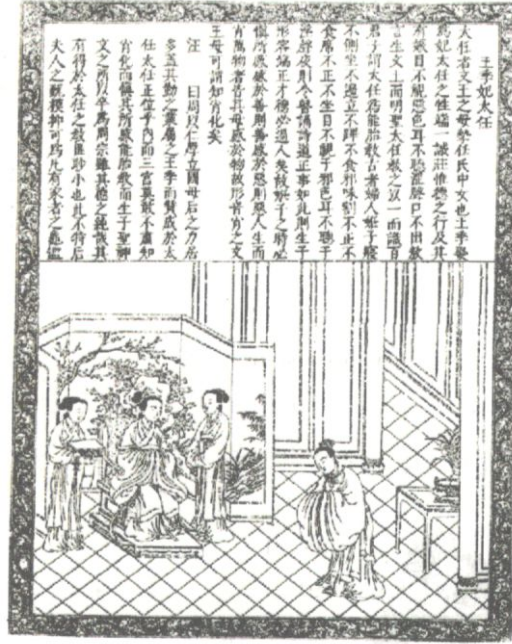 王季妃太任
太任者文王之母摯任氏中女也王季娶
爲妃太任之性端一誠莊惟德之行及其
有娠目不視惡色耳不聽淫聲口不出敖
言生文王而明聖太任教之以一而識百
君子謂太任爲能胎教古者婦人姙子寢
不側坐不邊立不蹕不食邪味割不正不
食席不正不坐目不視于邪色耳不聽于
淫聲夜則令瞽誦詩道正事如此則生子
形容端正才德必過人矣故姙子之時必
慎所感感於善則善感於惡則惡人生而
肖萬物者皆其母感於物故形音肖之文
王母可謂知肖化矣
汪 曰周以仁厚立國母后之力居
多蓋其勤之王季而賢於太
任太任正位乎內而三宮不肅知
肖化而慎其所感能胎教而生子聖
文之所以爲周宗雖其德之純其
有得於太任之教眇小也此不特后
夫人之範模抑可爲凡有家者之範